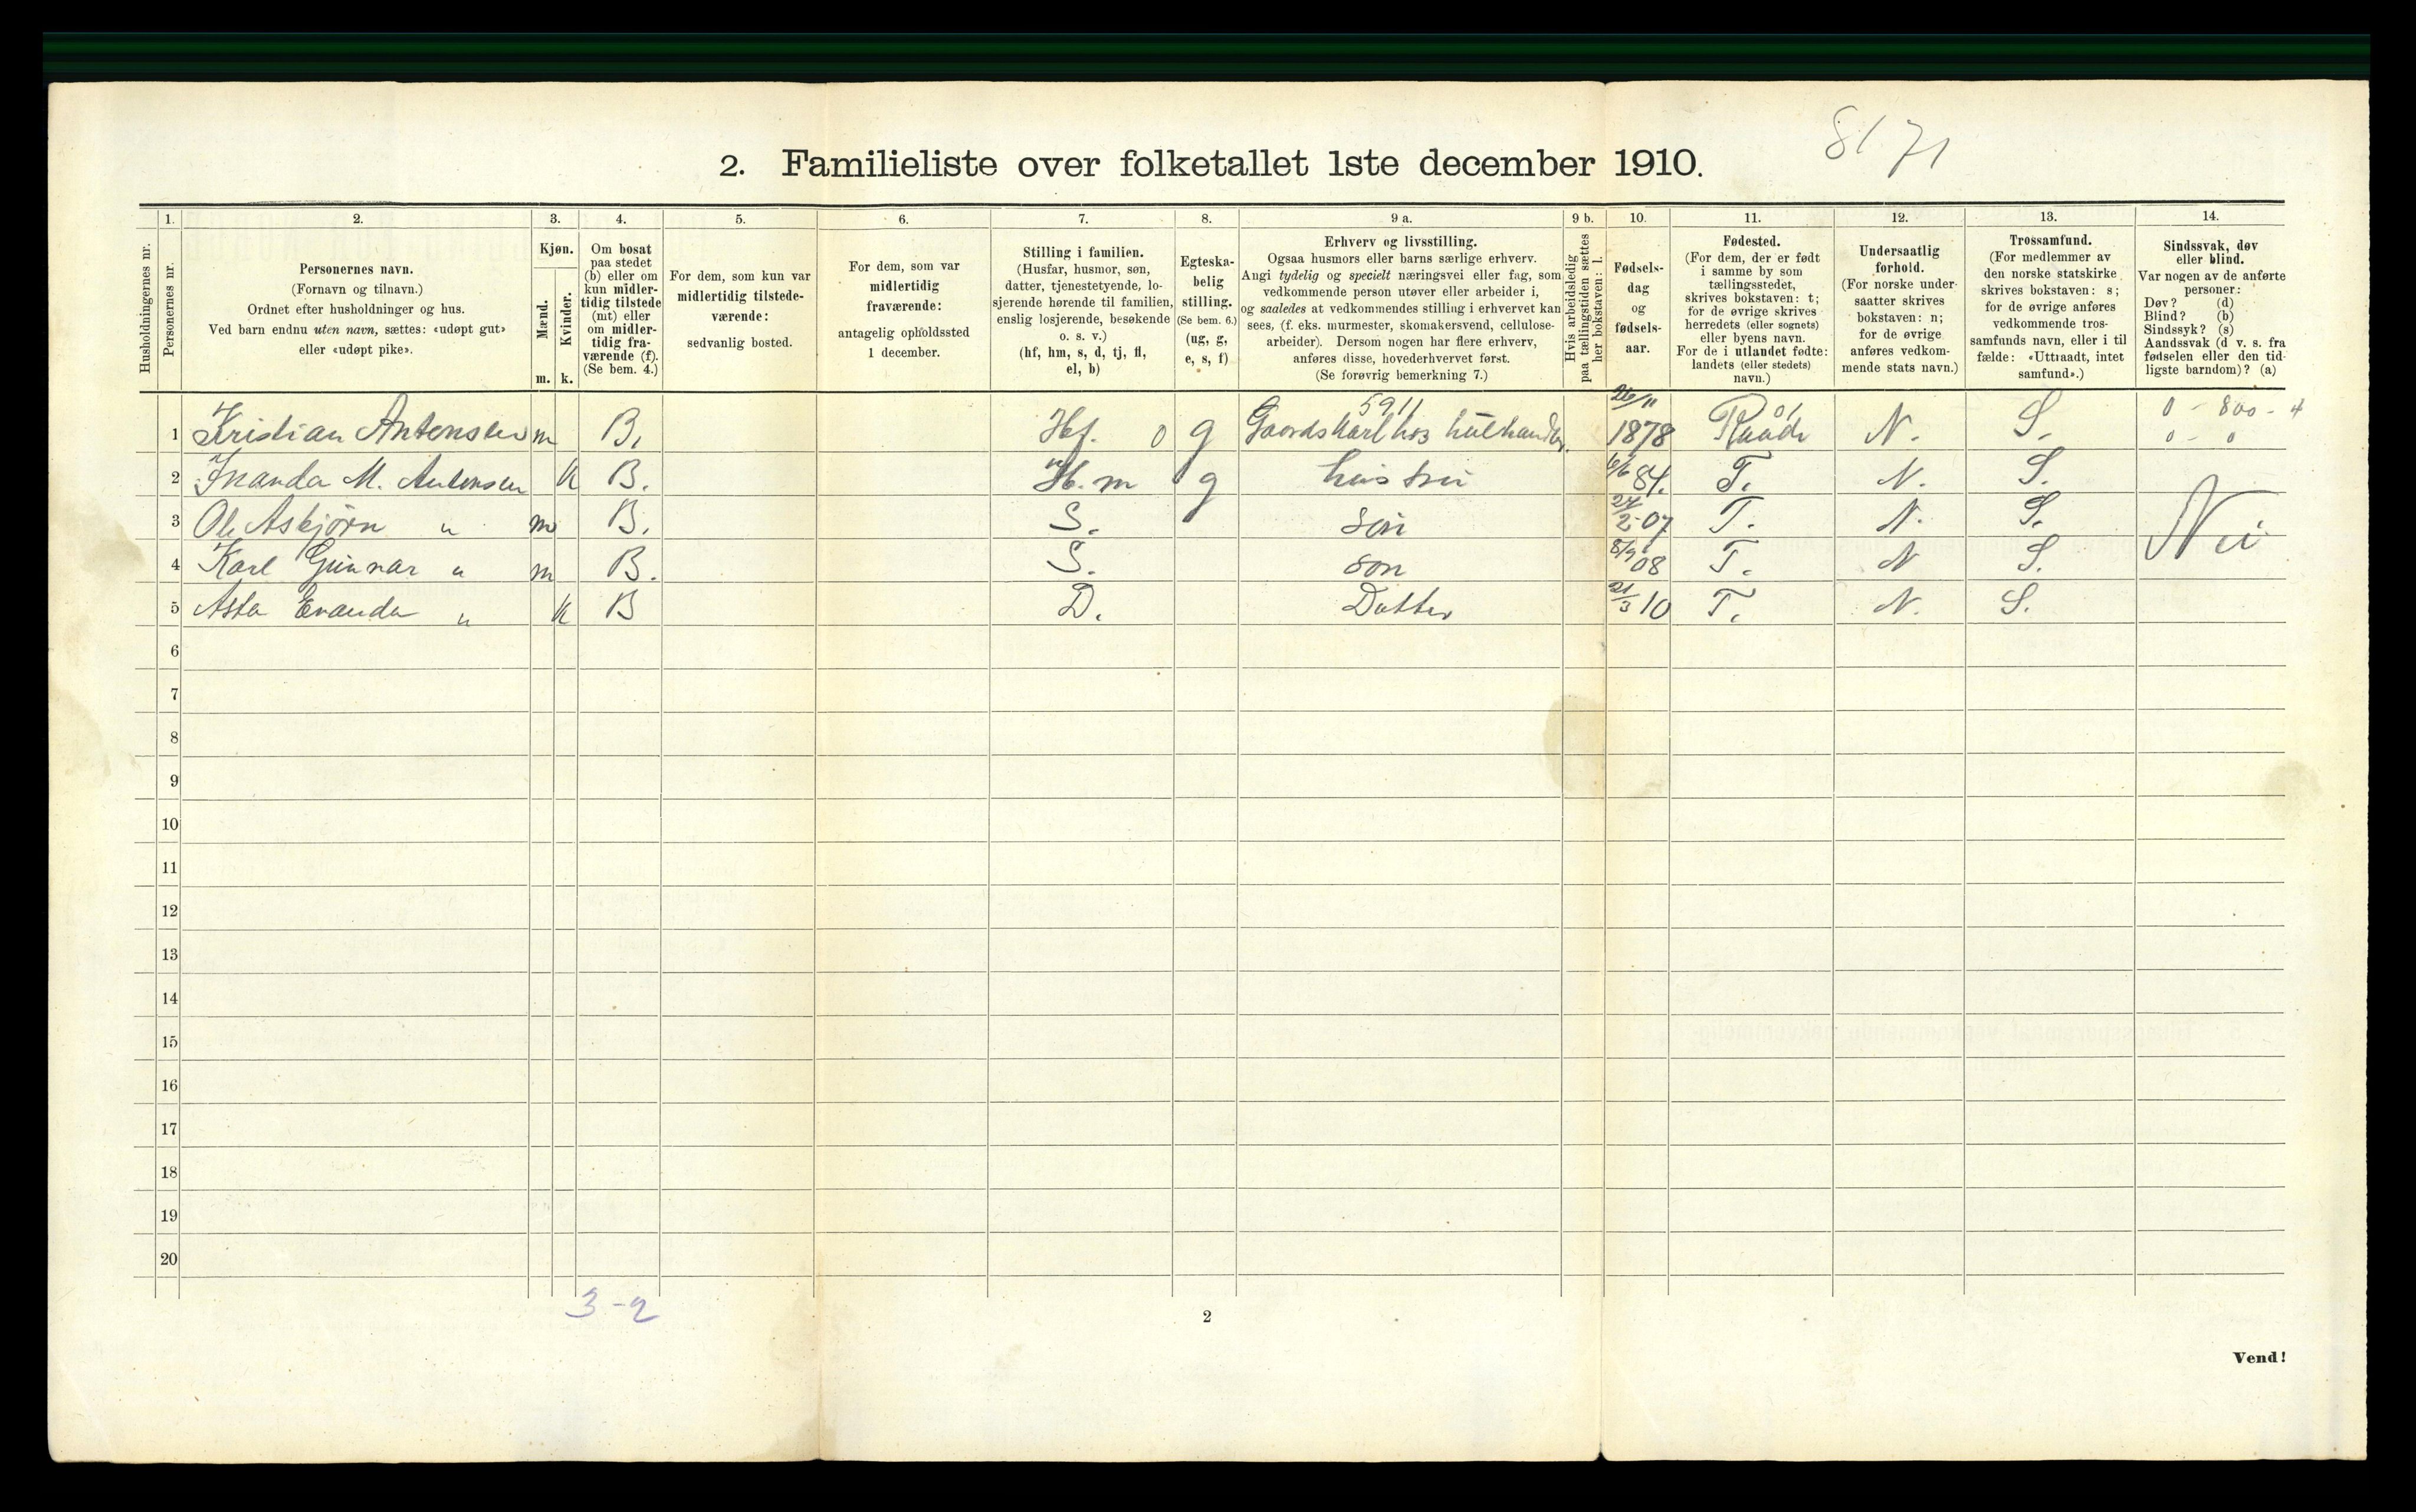 81 71
2. Familieliste over folketallet 1ste december 1910.
Husholdningernes nr.
1.
Personernes nr.
2.
Personernes navn.
(Fornavn og tilnavn.)
Ordnet efter husholdninger og hus.
Ved barn endnu uten navn, sættes: «udøpt gut»
eller «udøpt pike».
3.
Kjøn.
Mænd.
Kvinder.
m. k.
4.
Om bosat
paa stedet
(b) eller om
kun midler-
tidig tilstede
(mt) eller
om midler-
tidig fra-
værende (f).
(Se bem. 4.)
5.
For dem, som kun var
midlertidig tilstede-
værende:
sedvanlig bosted.
6.
For dem, som var
midlertidig
fraværende:
antagelig opholdssted
1 december.
7.
Stilling i familien.
(Husfar, husmor, søn,
datter, tjenestetyende, lo-
sjerende hørende til familien,
enslig losjerende, besøkende
o. s. v.)
(hf, hm, s, d, tj, fl,
el, b)
8.
Egteska-
belig
stilling.
(Se bem. 6.)
(ug, g,
e, s, f)
9 a.
Erhverv og livsstilling.
Ogsaa husmors eller barns særlige erhverv.
Angi tydelig og specielt næringsvei eller fag, som
vedkommende person utøver eller arbeider i,
og saaledes at vedkommendes stilling i erhvervet kan
sees, (f. eks. murmester, skomakersvend, cellulose-
arbeider). Dersom nogen har flere erhverv,
anføres disse, hovederhvervet først.
(Se forøvrig bemerkning 7.)
9 b.
Hvis arbeidsledig
paa tællingstiden sættes
her bokstaven: l.
10.
Fødsels-
dag
og
fødsels-
aar.
11.
Fødested.
(For dem, der er født
i samme by som
tællingsstedet,
skrives bokstaven: t;
for de øvrige skrives
herredets (eller sognets)
eller byens navn.
For de i utlandet fødte:
landets (eller stedets)
navn.)
12.
Undersaatlig
forhold.
(For norske under-
saatter skrives
bokstaven: n;
for de øvrige
anføres vedkom-
mende stats navn.)
13.
Trossamfund.
(For medlemmer av
den norske statskirke
skrives bokstaven: s;
for de øvrige anføres
vedkommende tros-
samfunds navn, eller i til
fælde: «Uttraadt, intet
samfund».)
14.
Sindssvak, døv
eller blind.
Var nogen av de anførte
personer:
Døv? (d)
Blind? (b)
Sindssyk? (s)
Aandssvak (d v. s. fra
fødselen eller den tid-
ligste barndom)? (a)
5911 26/11 01 0 - 800 - 4
1 Kristian Antensen m B. Hf. 0 g Gaardskarl hos 1878 Raade N. S. 0 - 0
2 M. Antensen k B. H.m g hustru 84. T. N. S.
3 Ole Asbjørn " m B. S. søn 27/2-07 T. N. S.
4 Karl Gunnar " m B. S. søn 8/9 08 T. N S. Nei
5 Asta Evanda " k B D. Datter 21/3 10 T. N. S.
6
7
8
9
10
11
12
13
14
15
16
17
18
19
20
3-2
2
Vend!